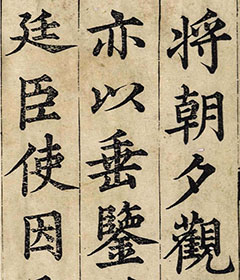 将朝夕觀
亦以垂鑒
廷臣使因